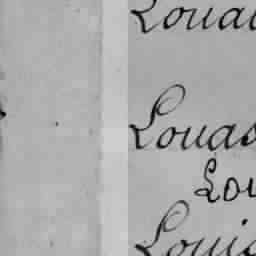 Loual
Louas
Lou
Louis